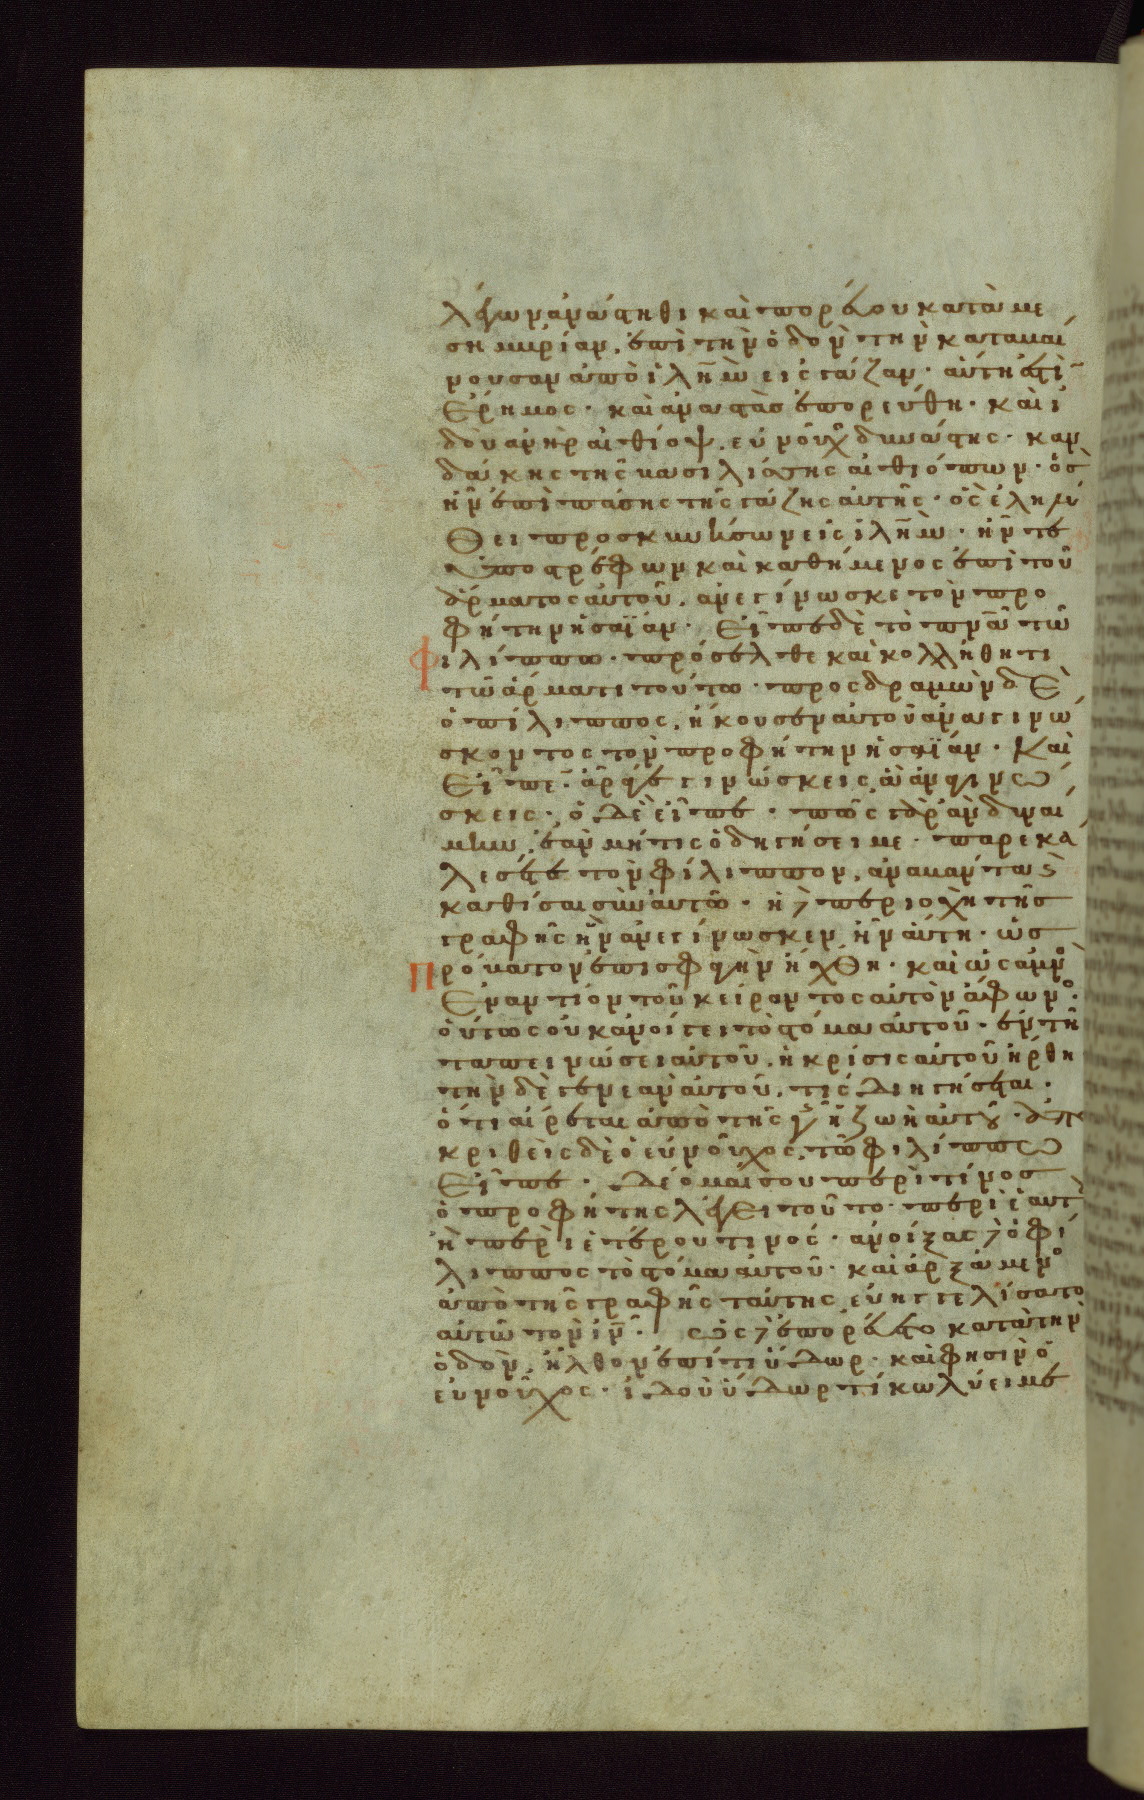 λέγων ἀνάστηθι καὶ πορεύου κατὰ με
σημβρίαν, ἐπὶ τὴν ὁδὸν τὴν καταβαί
νουσαν ἀπὸ ἰλῆμ εἰς γάζαν· αὕτη ἐστὶ
ἔρημος· καὶ ἀναστὰς ἐπορεύθη· καὶ ἰ
δοὺ ἀνὴρ αἰθίοψ, εὐνοῦχ δυνάστης· καν
δάκης τῆς βασιλίσσης αἰθιόπων· ὃς
ἦν ἐπὶ πάσης τῆς γάζης αὐτῆς· ὃς ἐλημύ
θει προσκυνήσων εἰς ἰλῆμ· ἦν τε
ὑποστρέφων καὶ καθήμενος ἐπὶ τοῦ
ἅρματος αὐτοῦ, ἀνεγίνωσκε τὸν προ
φήτην ἡσαΐαν· Εἶπε δὲ τὸ πνᾶ τῶ
φιλίππω· πρόσελθε καὶ κολλήθητι
τῶ ἅρματι τούτω· προσδραμὼν δὲ
ὁ φίλιππος, ἤκουσεν αὐτοῦ ἀναγινώ
σκοντος τὸν προφήτην ἡσαΐαν· Καὶ
εἶπεν· ἆρά γε γινώσκεις ἃ ἀναγινώ
σκεις· ὁ δὲ εἶπε· πῶς γὰρ ἂν δυναί
μην, ἐὰν μή τις ὁδηγήσει με· παρεκά
λεσέ τε τὸν φίλιππον, ἀναβάντα
καθίσαι σὺν αὐτῶ· ἡ δὲ περιοχὴ τῆς
γραφῆς ἣν ἀνεγίνωσκεν ἦν αὕτη· ὡς
πρόβατον ἐπὶ σφαγὴν ἤχθη· καὶ ὡς ἀμνὸ
ἐναντίον τοῦ κείραντος αὐτὸν ἄφωνο·
οὕτως οὐκ ἀνοίγει τὸ στόμα αὐτοῦ· ἐν τῆ
ταπεινώσει αὐτοῦ, ἡ κρίσις αὐτοῦ ἤρθη
τὴν δὲ γενεὰν αὐτοῦ, τίς διηγήσεται·
ὅτι αἴρεται ἀπὸ τῆς γῆς ἡ ζωὴ αὐτοῦ· ἀπο
κριθεὶς δὲ ὁ εὐνοῦχος, τῶ φιλίππω
εἶπε· δέομαί σου περὶ τίνος
ὁ προφήτης λέγει τοῦτο· περὶ ἑαυτ
ἢ περὶ ἑτέρου τινός· ἀνοίξας δὲ ὁ φί
λιππος τὸ στόμα αὐτοῦ· καὶ ἀρξάμενο
ἀπὸ τῆς γραφῆς ταύτης εὐηγγελίσατο
αὐτῶ τὸν ἰν· ὡς δὲ ἐπορεύοντο κατὰ τὴν
ὁδὸν, ἦλθον ἐπί τι ὕδωρ· καὶ φησιν ὁ
εὐνοῦχος· ἰδοὺ ὕδωρ τί κωλύει με